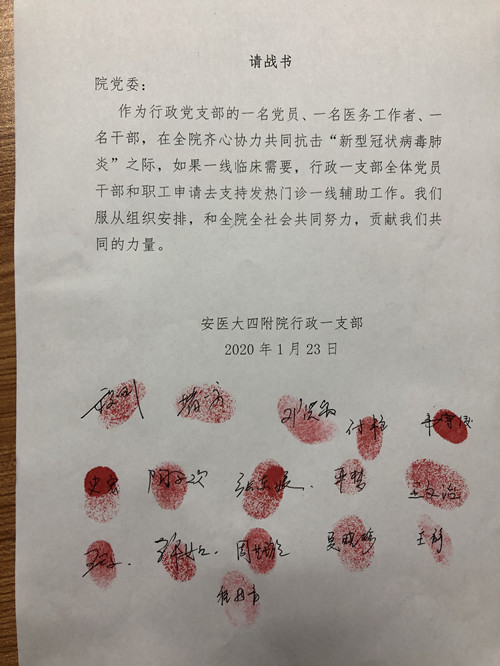 请战书
院党委：
作为行政党支部的一名党员、一名医务工作者、一
名干部，在全院齐心协力共同抗击“新型冠状病毒肺
炎”之际，如果一线临床需要，行政一支部全体党员
干部和职工申请去支持发热门诊一线辅助工作。我们
服从组织安排，和全院全社会共同努力，贡献我们共
同的力量。
安医大四附院行政一支部
2020年1月23日